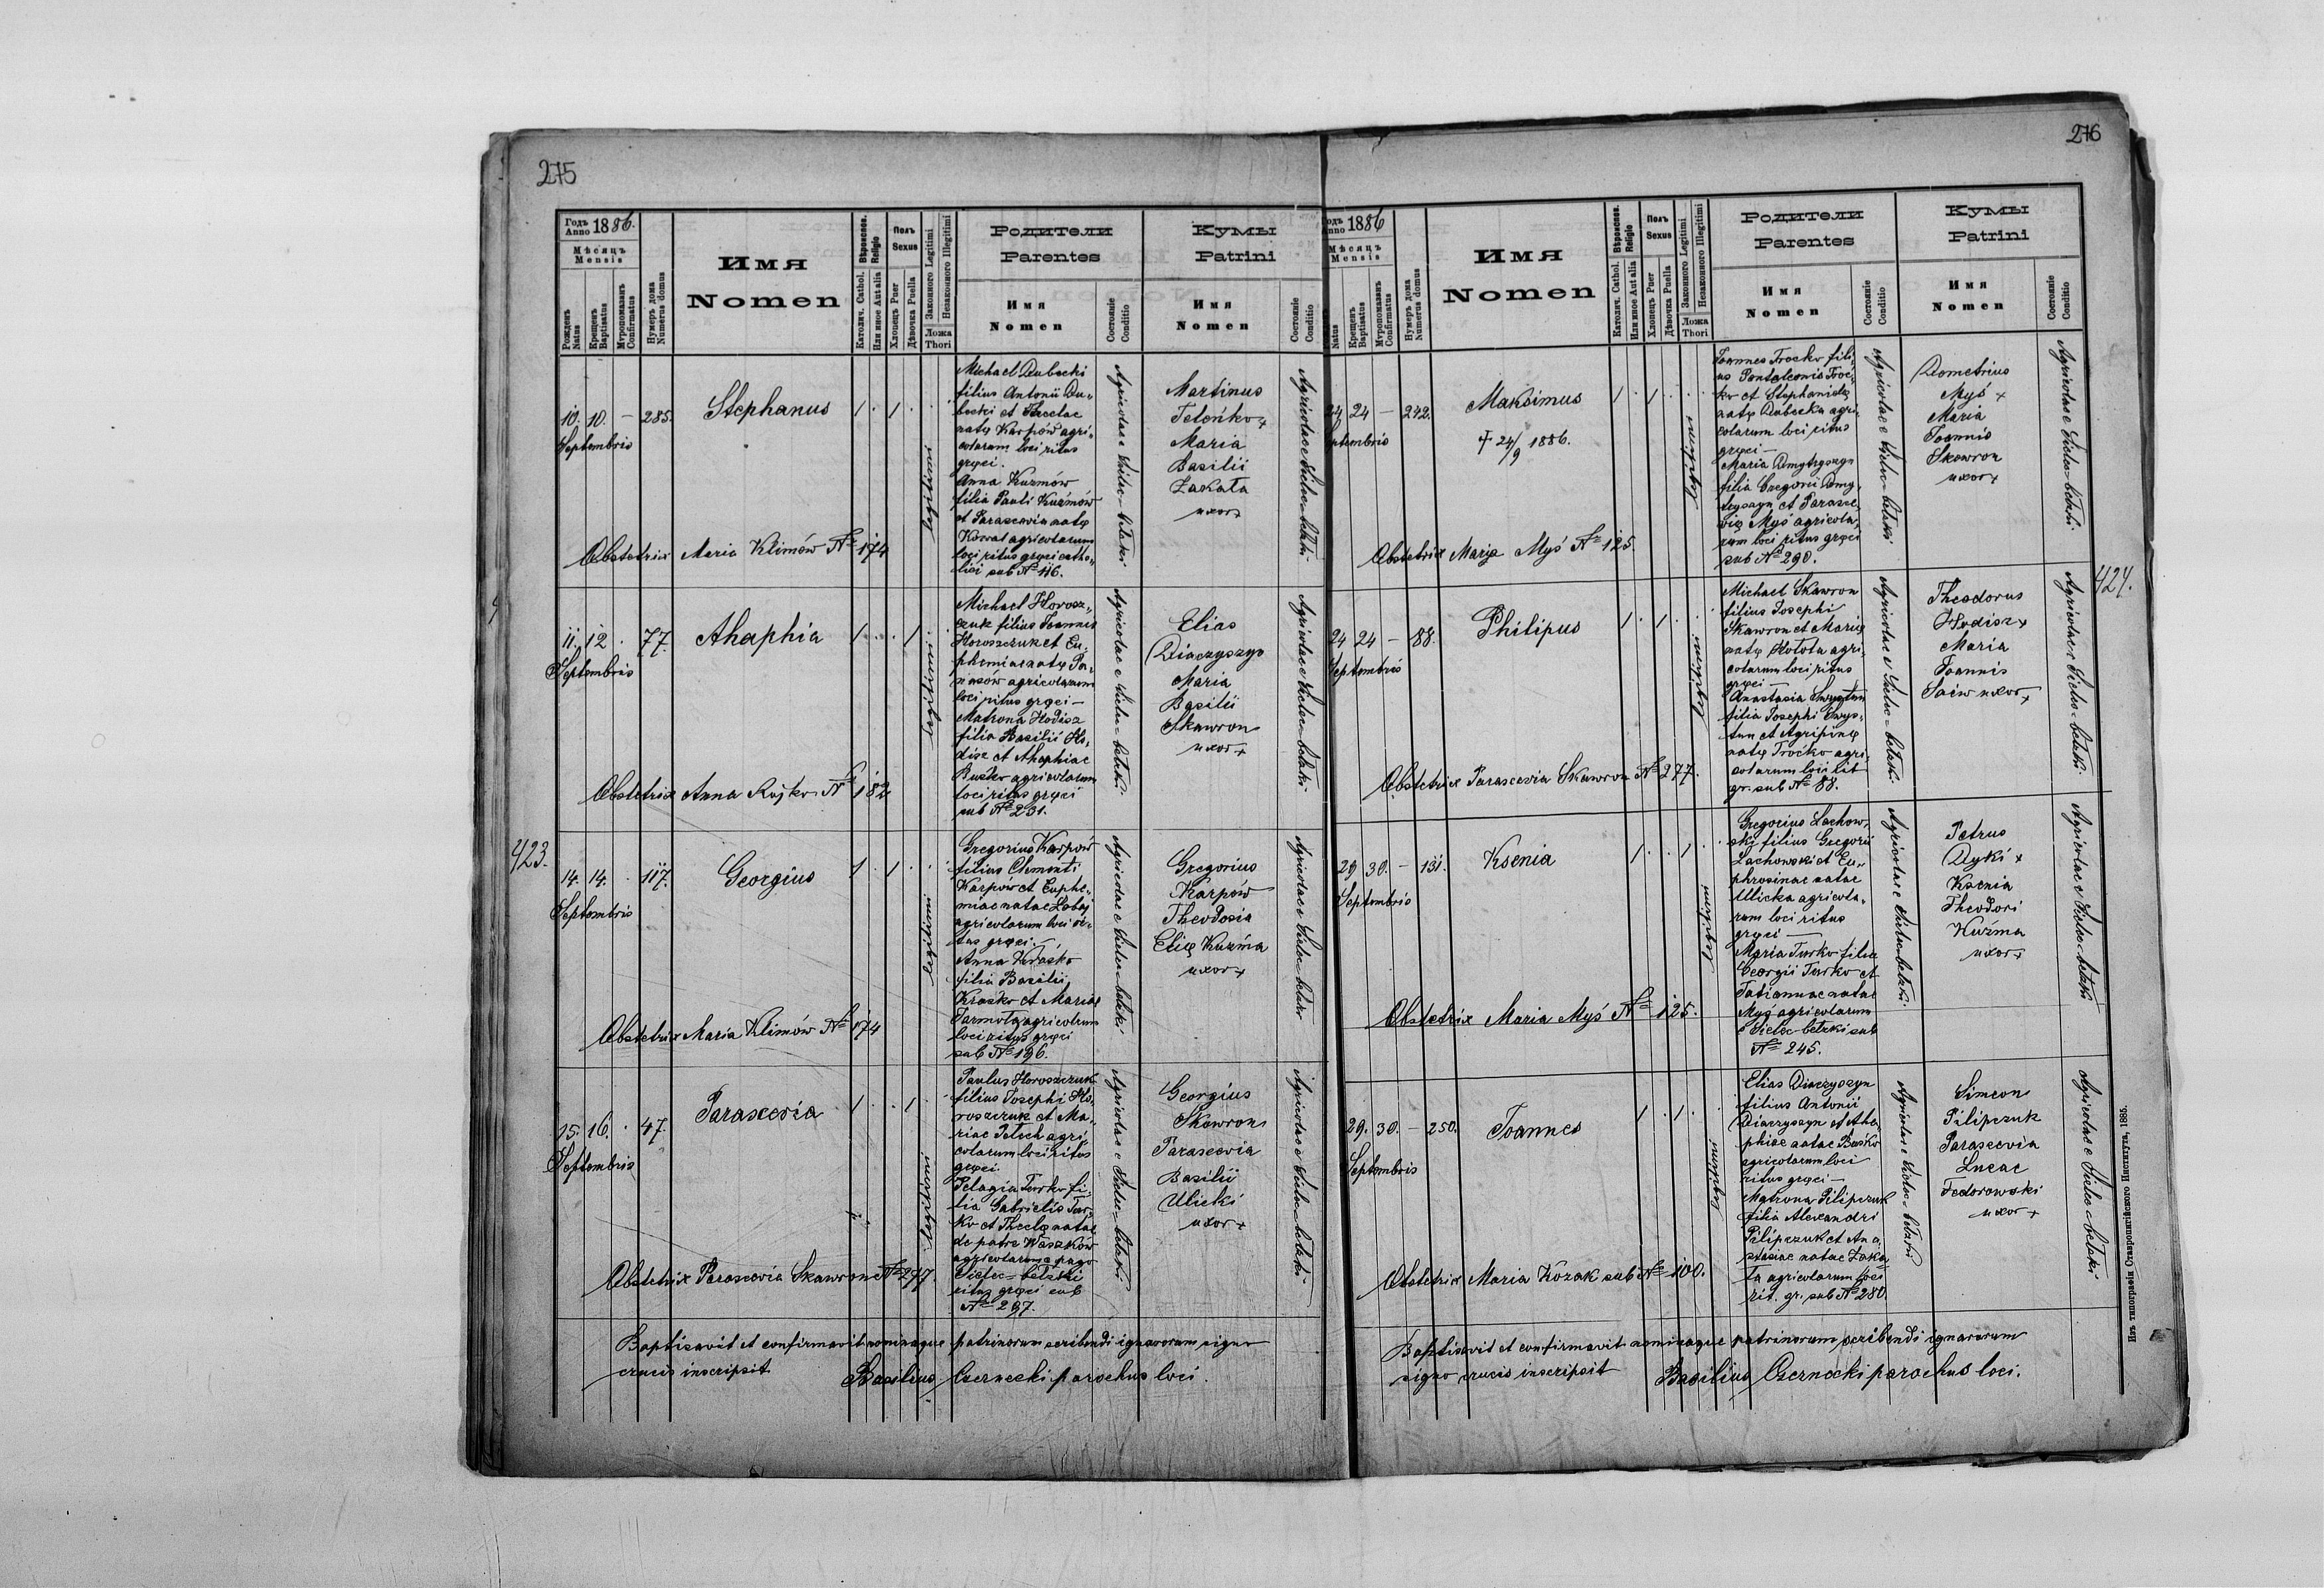 275
Годъ
Anno 1886.
Мѣсяцъ
Mensis
Рожденъ
Natus
Крещенъ
Baptisatus
Мѵропомазанъ
Confirmatus
Нумеръ дома
Numerus domus
Имя
Nomen
Вѣроиспов.
Religio
Католич. Cathol.
Или иное Aut alia
Полъ
Sexus
Хлопецъ Puer
Дѣвочка Puella
Законного Legitimi
Незаконного Illegitimi
Ложа
Thori
Родители
Parentes
Имя
Nomen
Состояніе
Conditio
Кумы
Patrini
Имя
Nomen
Состояніе
Conditio
10. 10. — 285.
Septembris
Stephanus
1 · 1 ·
legitimi
Michael Dubecki
filius Antonii Du„
becki et Theclae
natę Karpów agri„
colarum loci ritus
gręci.
Anna Kuzmów
filia Pauli Kuźmów
et Parascevia natę
Kowal agricolarum
loci ritus gręci catho„
lici sub № 116.
Martinus
Teleńko +
Maria
Basilii
Zakała
uxor +
Obstetrix Maria Klimów № 174
11. 12. · 77.
Septembris
Ahaphia
1 · · 1
legitimi
Michael Horosz„
czuk filius Joannis
Horoszczuk et Eu„
phemiae natę Pa„
nasów agricolarum
loci ritus gręci —
Matrona Hodisz
filia Basilii Ho„
disz et Ahaphiae
Buśko agricolarum
loci ritus gręci
sub № 231.
Elias
Diaczyszyn
Maria
Basilii
Skawron
uxor +
Obstetrix Anna Rojko № 182
423.
14. 14. · 117.
Septembris
Georgius
1 · 1 ·
legitimi
Gregorius Karpów
filius Clementi
Karpów et Euphe„
miae natae Łabaj
agricolarum loci ri„
tus gręci. —
Anna Krasko
filia Basilii
Krasko et Mariae
Jarmoła agricolrum
loci ritus gręci
sub № 196.
Gregorius
Karpów
Theodosia
Elię Kuzma
uxor +
Obstetrix Maria Klimów № 174
15. 16. · 47.
Septembris
Parascevia
1 · · 1
legitimi
Paulus Horoszczuk
filius Josephi Ho„
roszczuk et Ma„
riae Pelech agri„
colarum loci ritus
gręci.
Pelagia Turko fi„
lia Gabrielis Tur„
ko et Theclę natae
de patre Waszków
agricolarum e pago
Sielec=bełzki
ritus gręci sub
№ 297.
Georgius
Skawron
Parascevia
Basilii
Ulicki
uxor +
Obstetrix Parascevia Skawron № 277.
Baptisavit et confirmavit nominaque patrinorum scribendi ignarorum signo
crucis inscripsit Basilius Czernecki parochus loci.
276
Годъ
Anno 1886
Мѣсяцъ
Mensis
Natus
Крещенъ
Baptisatus
Мѵропомазанъ
Confirmatus
Нумеръ дома
Numerus domus
Имя
Nomen
Вѣроиспов.
Religio
Католич. Cathol.
Или иное Aut alia
Полъ
Sexus
Хлопецъ Puer
Дѣвочка Puella
Законного Legitimi
Незаконного Illegitimi
Ложа
Thori
Родители
Parentes
Имя
Nomen
Состояніе
Conditio
Кумы
Patrini
Имя
Nomen
Состояніе
Conditio
24 24 — 242.
Septembris
Maksimus
† 24/9 1886.
1 · 1 ·
legitimi
Joannes Trocko fili„
us Pantaleonis Troc„
ko et Stephanidę
natę Dubecka agri„
colarum loci ritus
gręci —
Maria Dmytryszyn
filia Gregorii Dmy„
tryszyn et Parasce„
vię Myś agricola„
rum loci ritus gręci
sub № 290.
Demetrius
Myś +
Maria
Joannis
Skawron
uxor +
Obstetrix Marya Myś № 125.
424.
24 24 — 88.
Septembris
Philipus
1 · 1 ·
legitimi
Michael Skawron
filius Josephi
Skawron et Marię
natę Hołota agri„
colarum loci ritus
gręci —
Anastasia Swystun
filia Josephi Swys„
tun et Agripinę
natę Troćko agri„
colarum loci rit
gr. sub № 88.
Theodorus
Hodisz +
Maria
Joannis
Saiw uxor +
Obstetrix Parascevia Skawron № 277.
29 30. — 131.
Septembris
Ksenia
1 · · 1
legitimi
Gregorius Lachow„
ski filius Gregorii
Lachowski et Eu„
phrosinae natae
Ulicka agricola„
rum loci ritus
gręci —
Maria Turko filia
Georgii Turko et
Tatiannae natae
Myś agricolarum
e Sielec=bełzki sub
№ 245.
Petrus
Dyki +
Ksenia
Theodori
Kuźma
uxor +
Obstetrix Maria Myś № 125.
29. 30. — 250.
Septembris
Joannes
1 · 1 ·
legitimi
Elias Diaczyszyn
filius Antonii
Diaczyszyn et Aha„
phiae natae Buśko
agricolarum loci
ritus gręci —
Matrona Pilipczuk
filia Alexandri
Pilipczuk et Ana„
stasiae natae Zaka„
ła agricolarum loci
rit. gr. sub № 280.
Simeon
Pilipczuk
Parascevia
Lucae
Fedorowski
uxor +
Obstetrix Maria Kozak sub № 100.
Baptisavit et confirmavit nominaque patrinorum scribendi ignarorum
signo crucis inscripsit Basilius Czernecki parochus loci.
Изъ типографіи Ставропигійского Института, 1885.